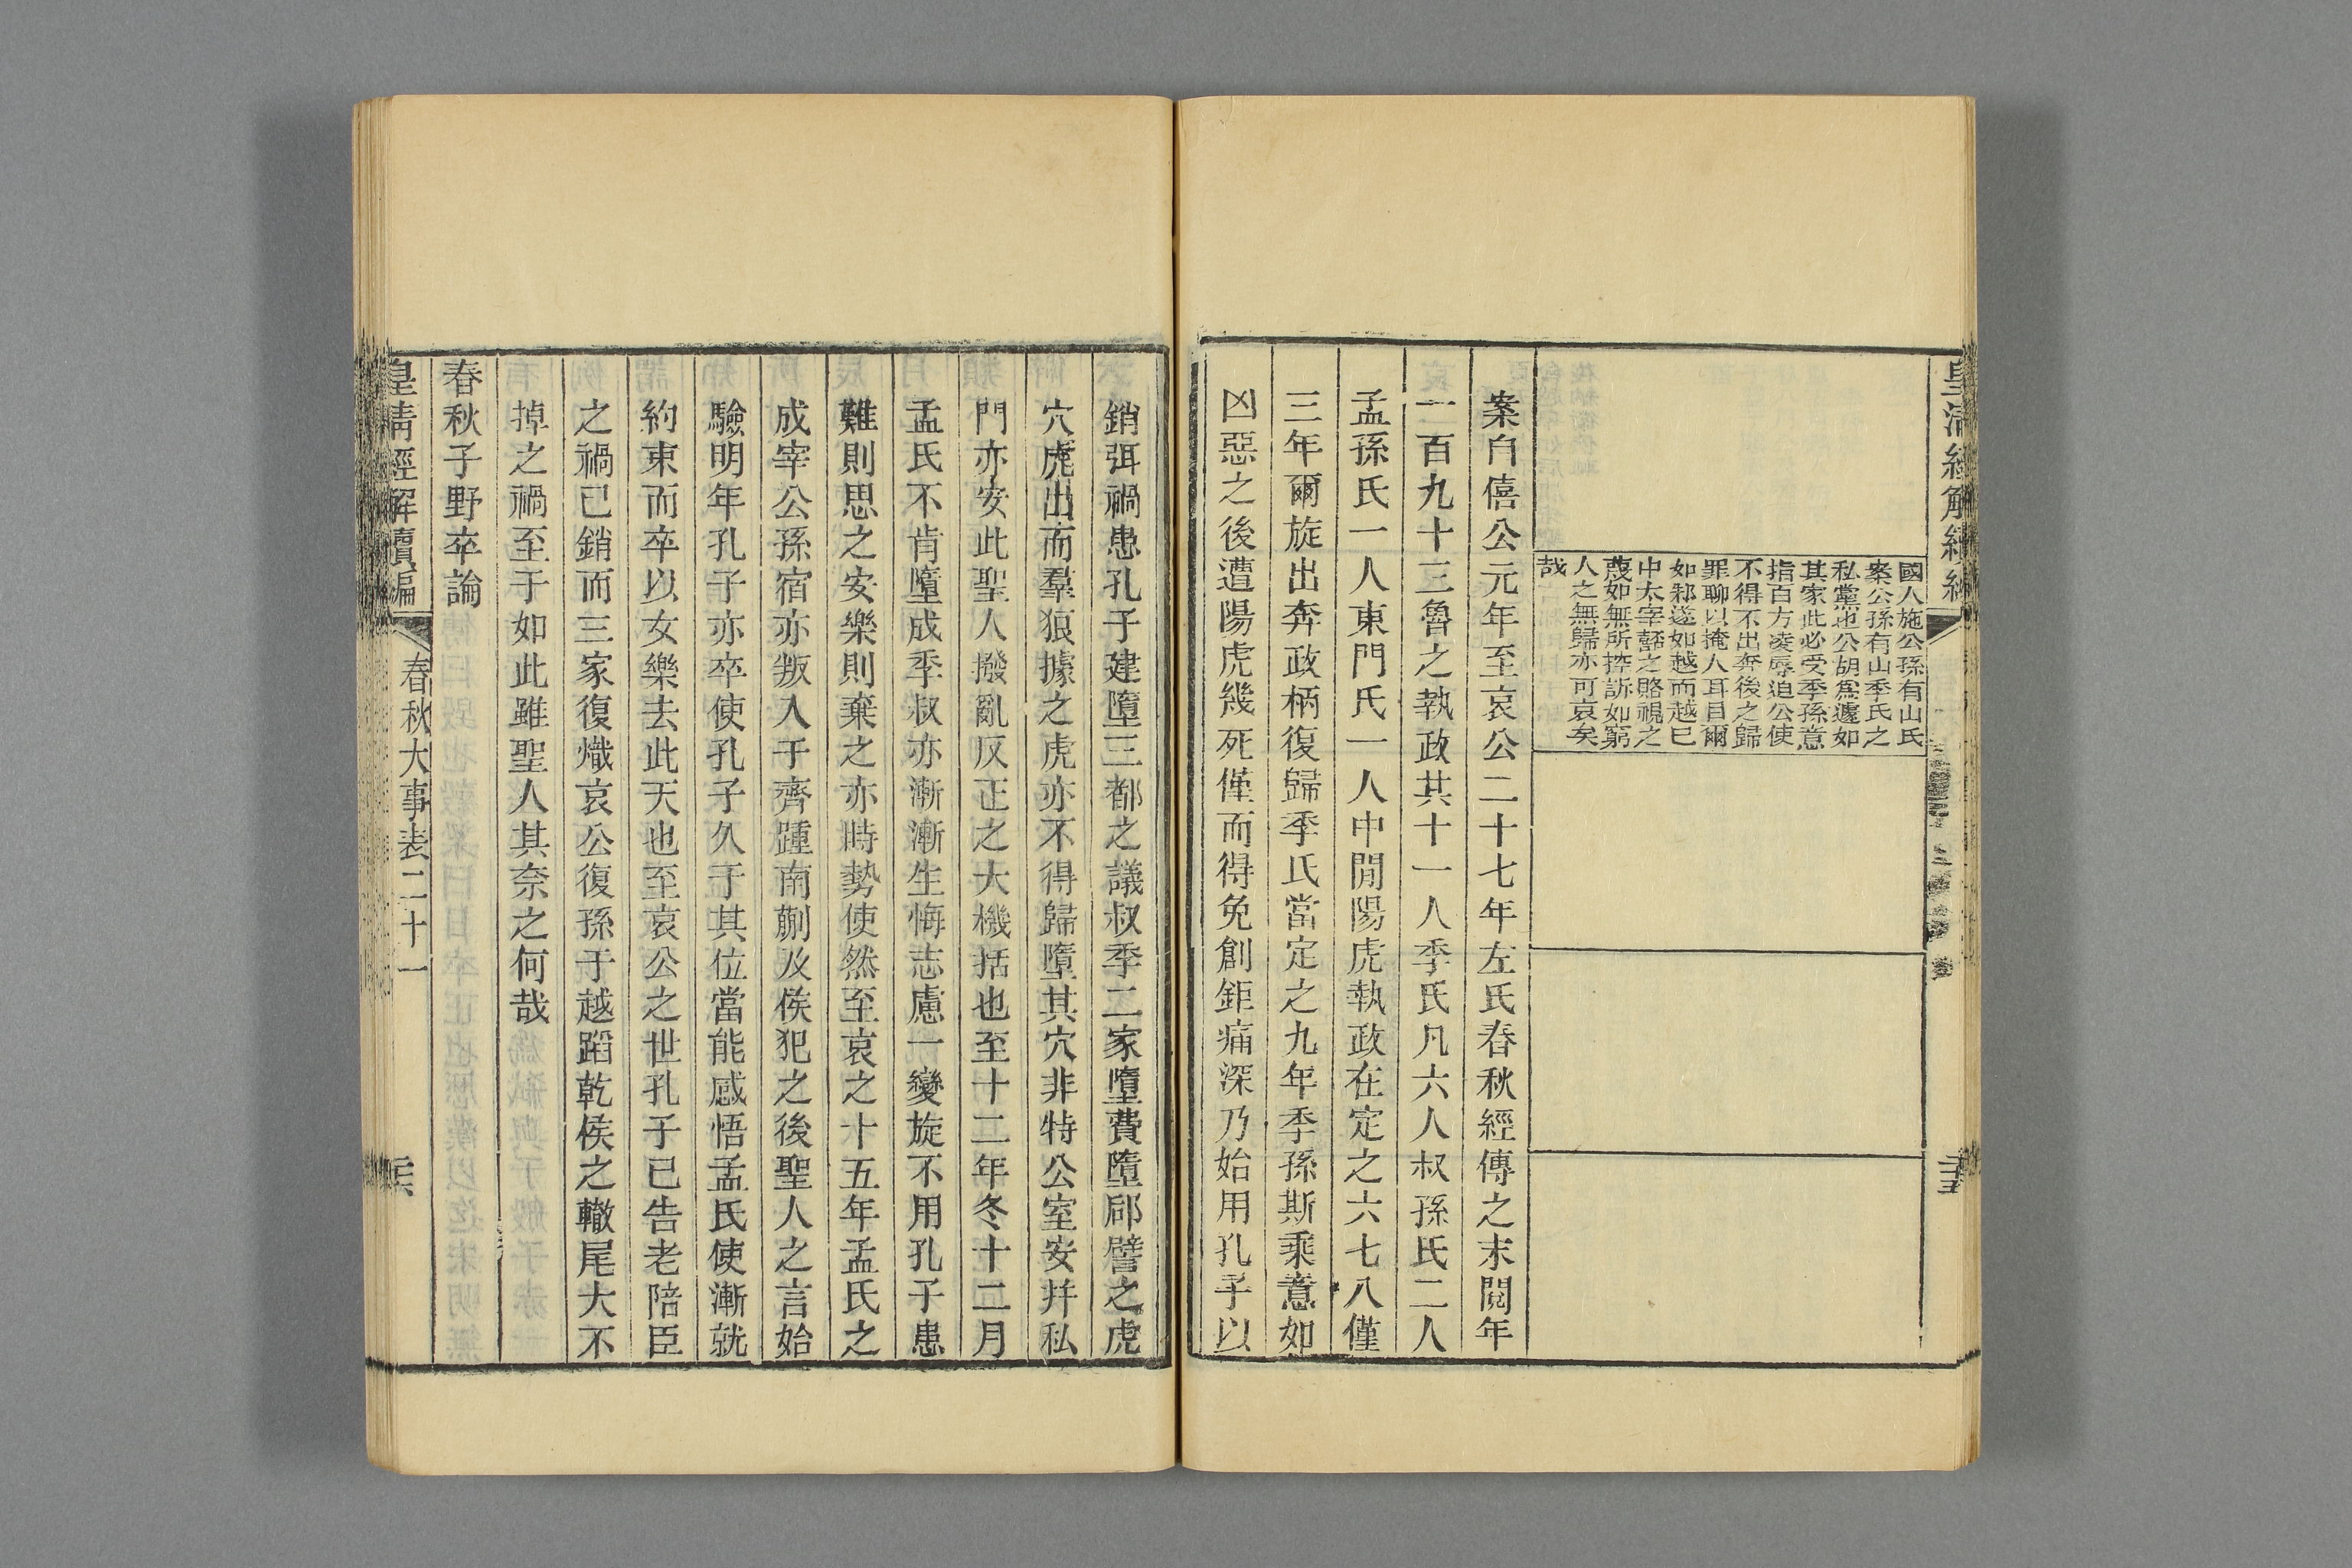 國人施公孫有山氏
案公孫有山季氏之
私黨也公胡爲遽如
其家此必受季孫意
指百方凌辱迫公使
不得不出奔後之歸
罪聊以掩人耳目爾
如邾遂如越而越已
中太宰嚭之賂視之
蔑如無所控訴如窮
人之無歸亦可哀矣
哉
案自僖公元年至哀公二十七年左氏春秋經傳之末閱年
一百九十三魯之執政共十一人季氏凡六人叔孫氏二人
孟孫氏一人東門氏一人中閒陽虎執政在定之六七八僅
三年爾旋出奔政柄復歸季氏當定之九年季孫斯乘意如
凶惡之後遭陽虎幾死僅而得免創鉅痛深乃始用孔子以
銷弭禍患孔子建墮三都之議叔季二家墮費墮郈譬之虎
穴虎出而羣狼據之虎亦不得歸墮其穴非特公室安并私
門亦安此聖人撥亂反正之大機括也至十二年冬十二月
孟氏不肯墮成季叔亦漸漸生悔志慮一變旋不用孔子患
難則思之安樂則棄之亦時勢使然至哀之十五年孟氏之
成宰公孫宿亦叛入于齊踵南蒯及侯犯之後聖人之言始
驗明年孔子亦卒使孔子久于其位當能感悟孟氏使漸就
約束而卒以女樂去此天也至哀公之世孔子已告老陪臣
之禍已銷而三家復熾哀公復孫于越蹈乾侯之轍尾大不
掉之禍至于如此雖聖人其奈之何哉
春秋子野卒論
皇清經解續編
春秋大事表二十一